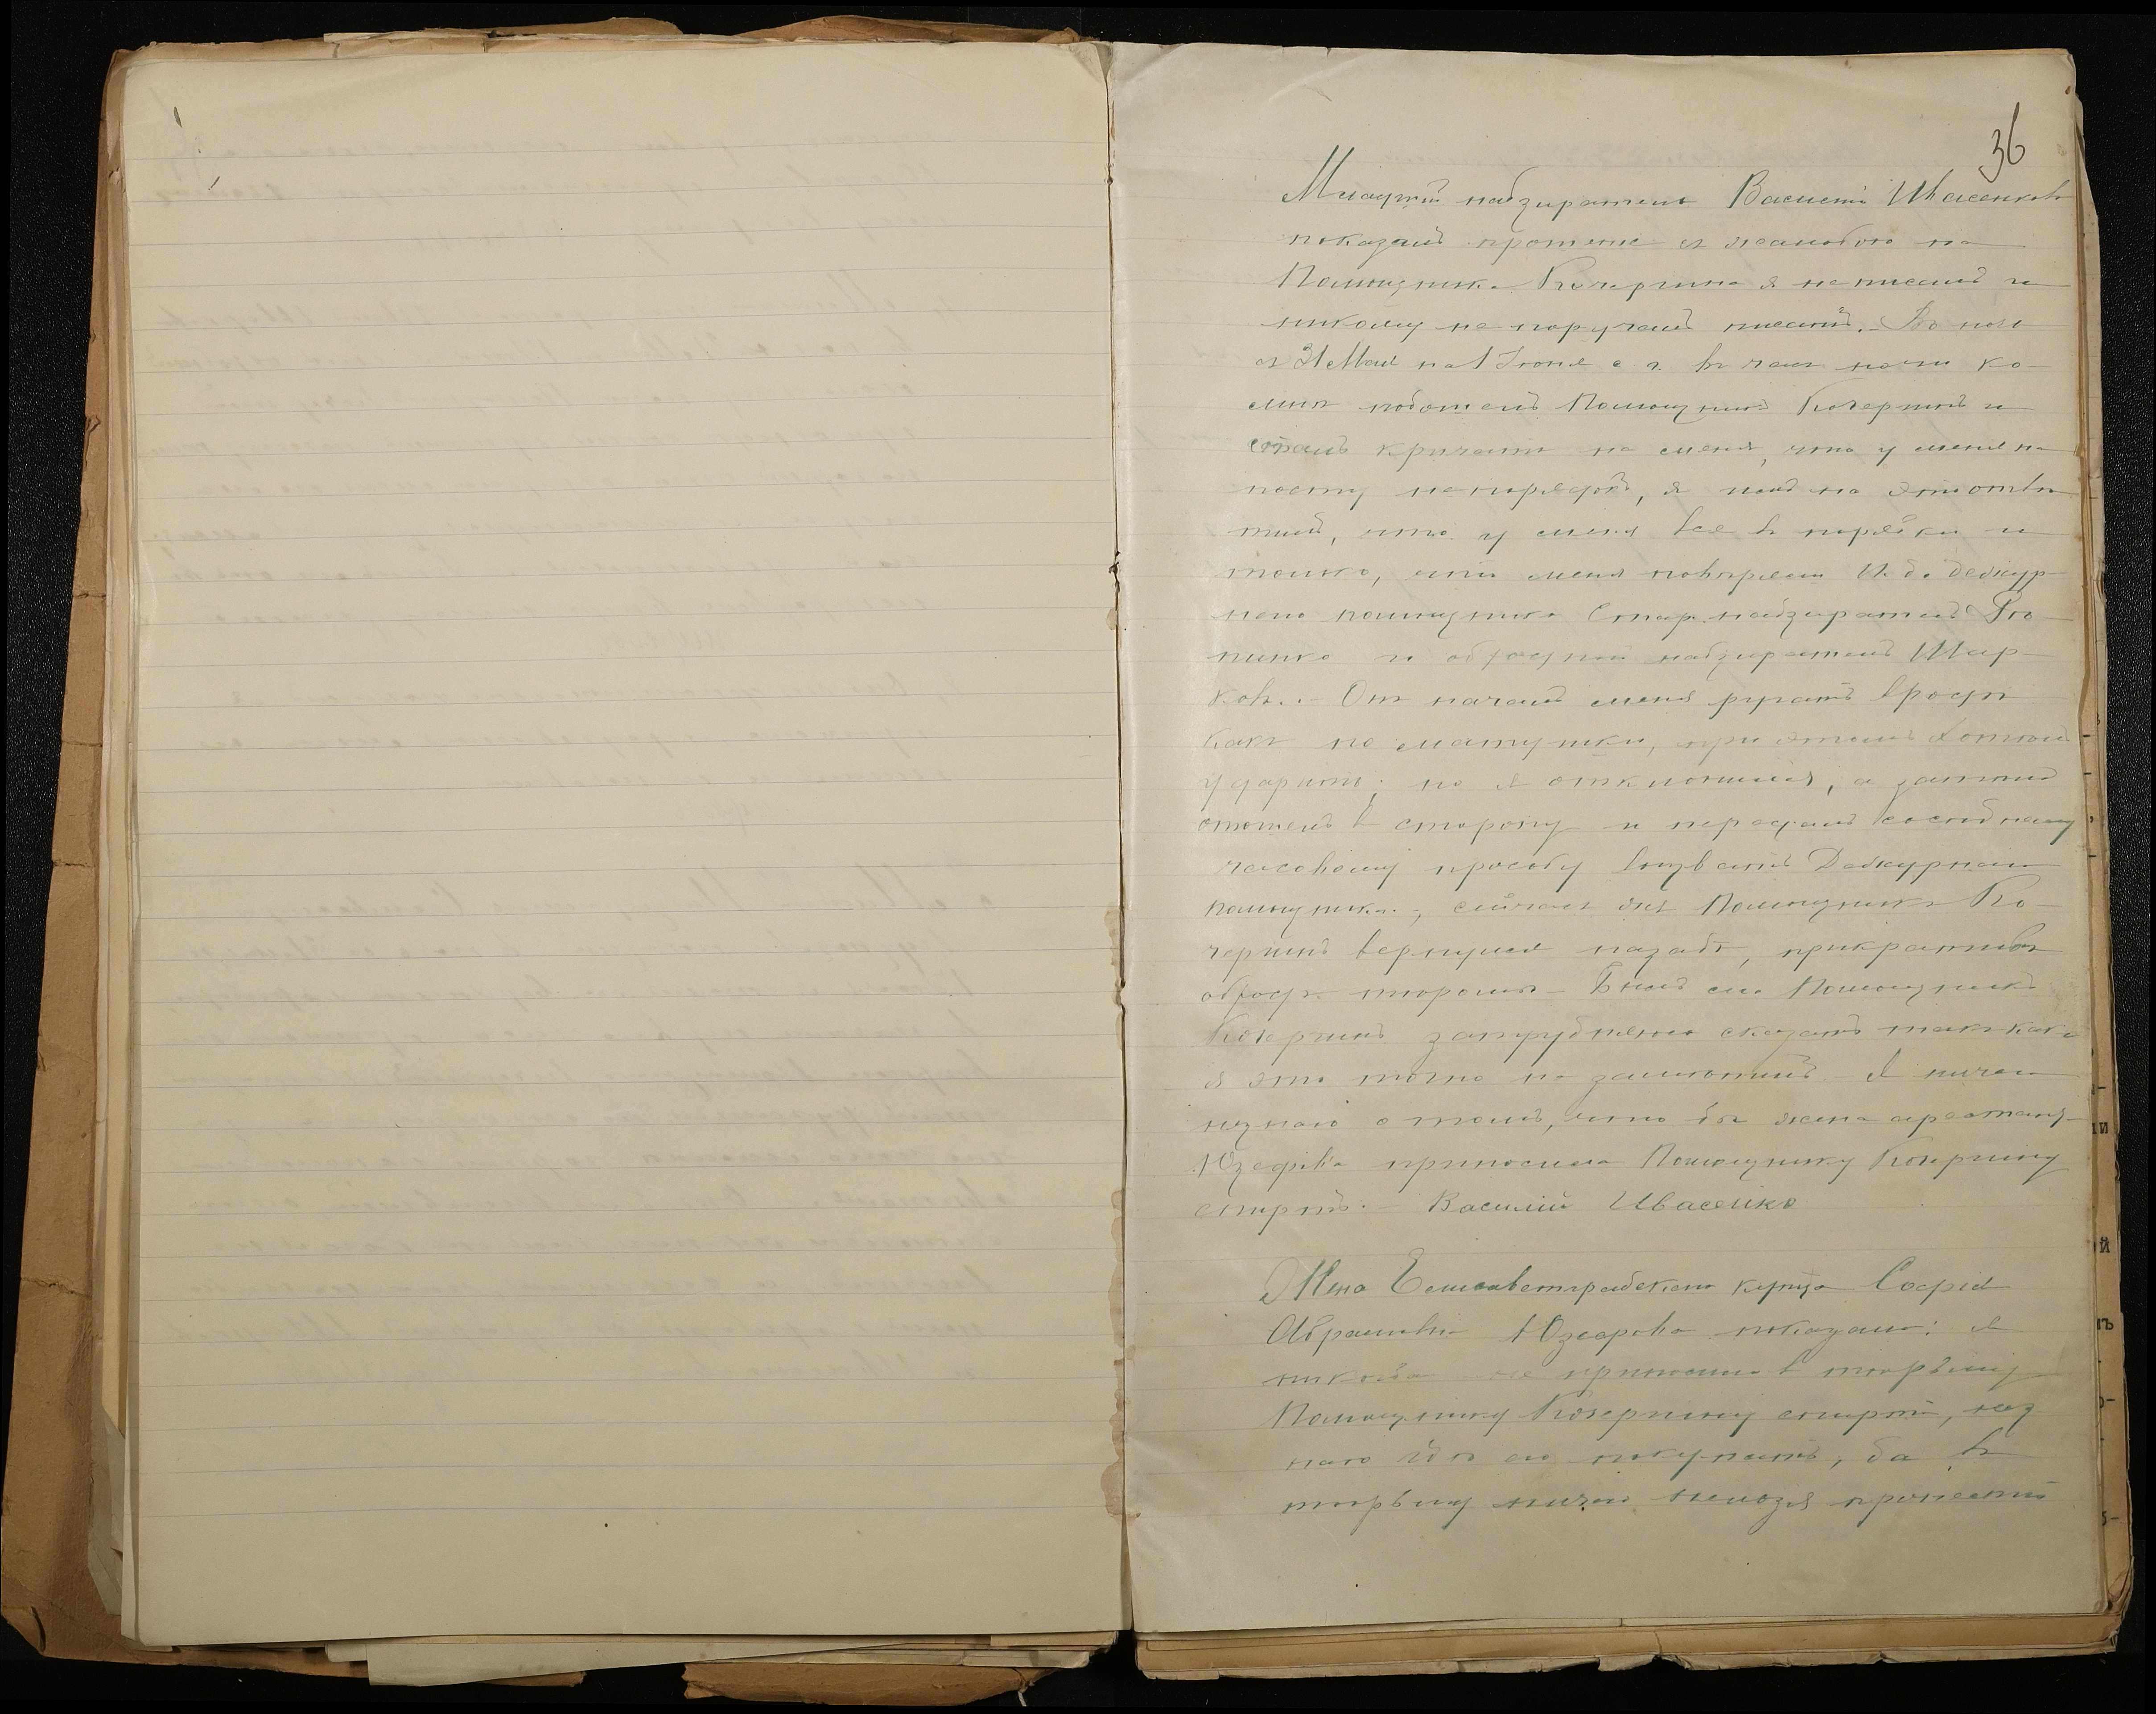 36
Младшій надзиратель Василій Ивасенковъ
показалъ прошеніе съ жалобою на
Помощника Кочергина я не писалъ и
никому не поручалъ писать. – Въ ночь
съ 31 Мая на 1 Іюня с. г. въ часъ ночи ко
мнѣ подошелъ Помощникъ Кочергинъ и
сталъ кричать на меня, что у меня на
посту непорядокъ, я ему на это отвѣ
тилъ, что у меня все въ порядки и
только, что меня повѣрялъ И. д. Дежур-
наго помощника Стар. надзиратель
и обходной надзиратель Шар-
ковъ. – Онъ началъ меня ругать вродѣ
какъ по матушки, при этомъ хотѣлъ
ударить, но я отклонился, а затѣмъ
отошелъ въ сторону и передалъ сосѣднему
часовому просьбу вызвать Дежурнаго
помощника, сейчасъ же Помощникъ Ко-
чергинъ вернулся назадъ, прикративъ
обходъ тюрьмы – Былъ ли Помощникъ
Кочергинъ затрудняюсь сказать такъ какъ
я это точно не замѣтилъ. Я ничего
незнаю о томъ, что бы жена арестанта
Юзефова приносила Помощнику Кочергину
спиртъ. – Василий Ивасенко
Жена Елисаветградскаго купца Софія
Абрамовна Юзефова показала: я
никогда не приносила въ тюрьму
Помощнику Кочергину спиртъ, нез
наю гдѣ его покупать, да въ
тюрьму ничего нельзя пронести